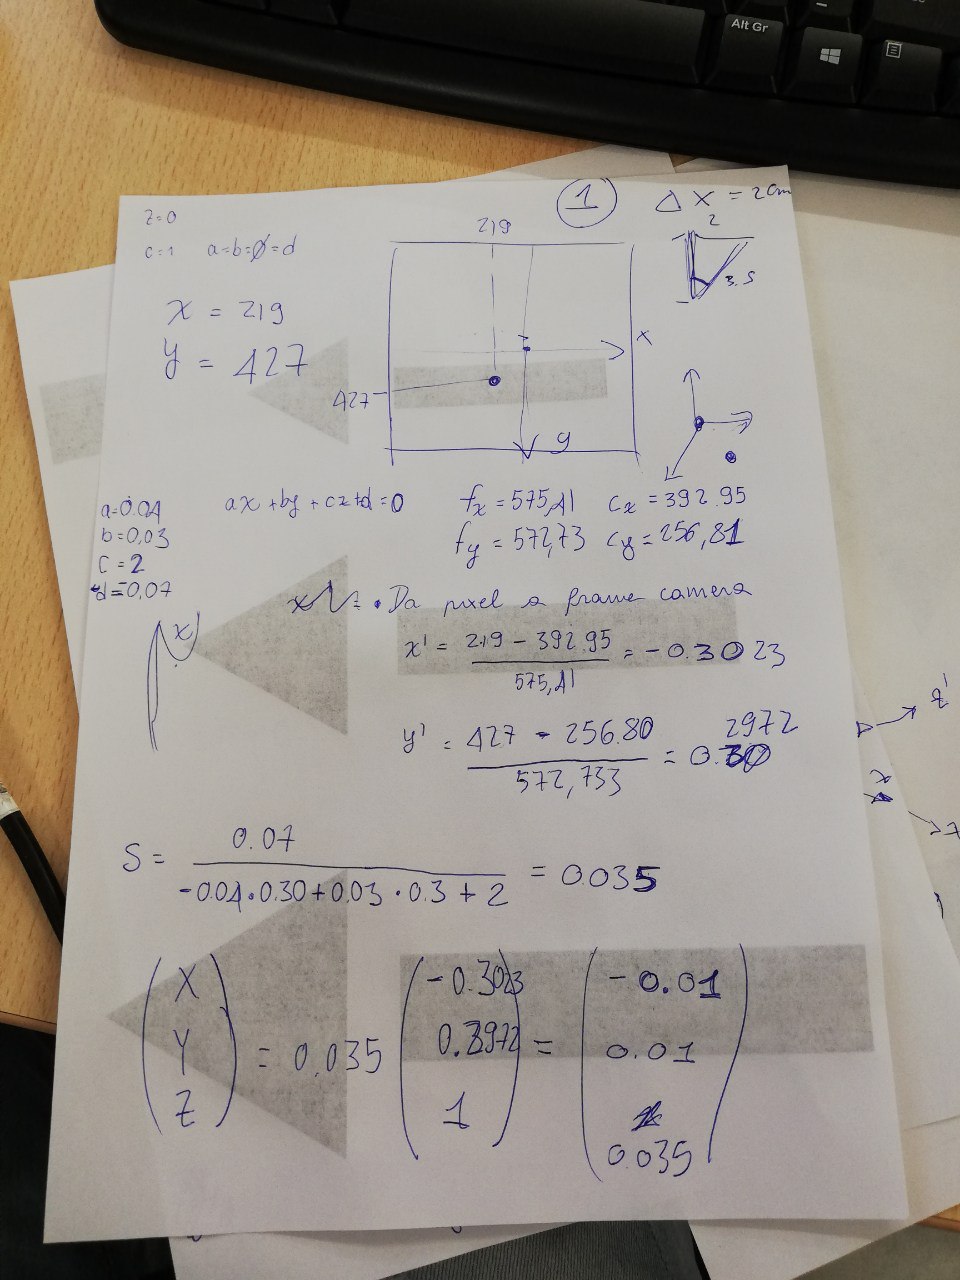 Alt Gr
1
Δ X = 2cm
z=0
c=1 a=b=0=d
219
2
3.5
x = 219
y = 427
x
427
y
a=0.04
b=0,03
c=2
d=0,07
ax+by+cz+d=0
fx = 575,41 cx = 392.95
fy = 572,73 cy = 256,81
• Da pixel a frame camera
x' = 219 - 392.95 / 575,41 = -0.3023
x'
y' = 427 - 256.80 / 572,733 = 0.2972
z'
x
S = 0.07 / -0.04·0.30+0.03·0.3+2 = 0.035
(X Y Z) = 0.035 (-0.3023 0.2972 1) = (-0.01 0.01 0.035)